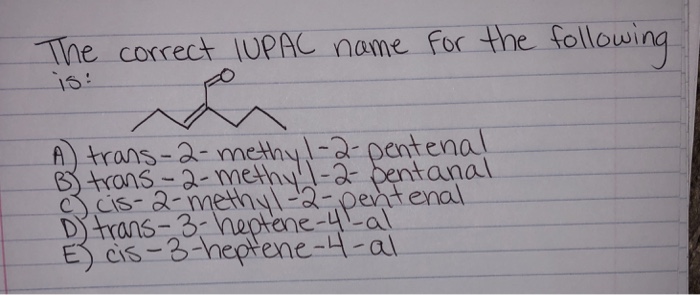 The correct IUPAC name for the following
is:
O
A) trans-2-methyl-2-pentenal
B) trans-2-methyl-2-pentanal
C) cis-2-methyl-2-pentenal
D) trans-3-heptene-4-al
E) cis-3-heptene-4-al